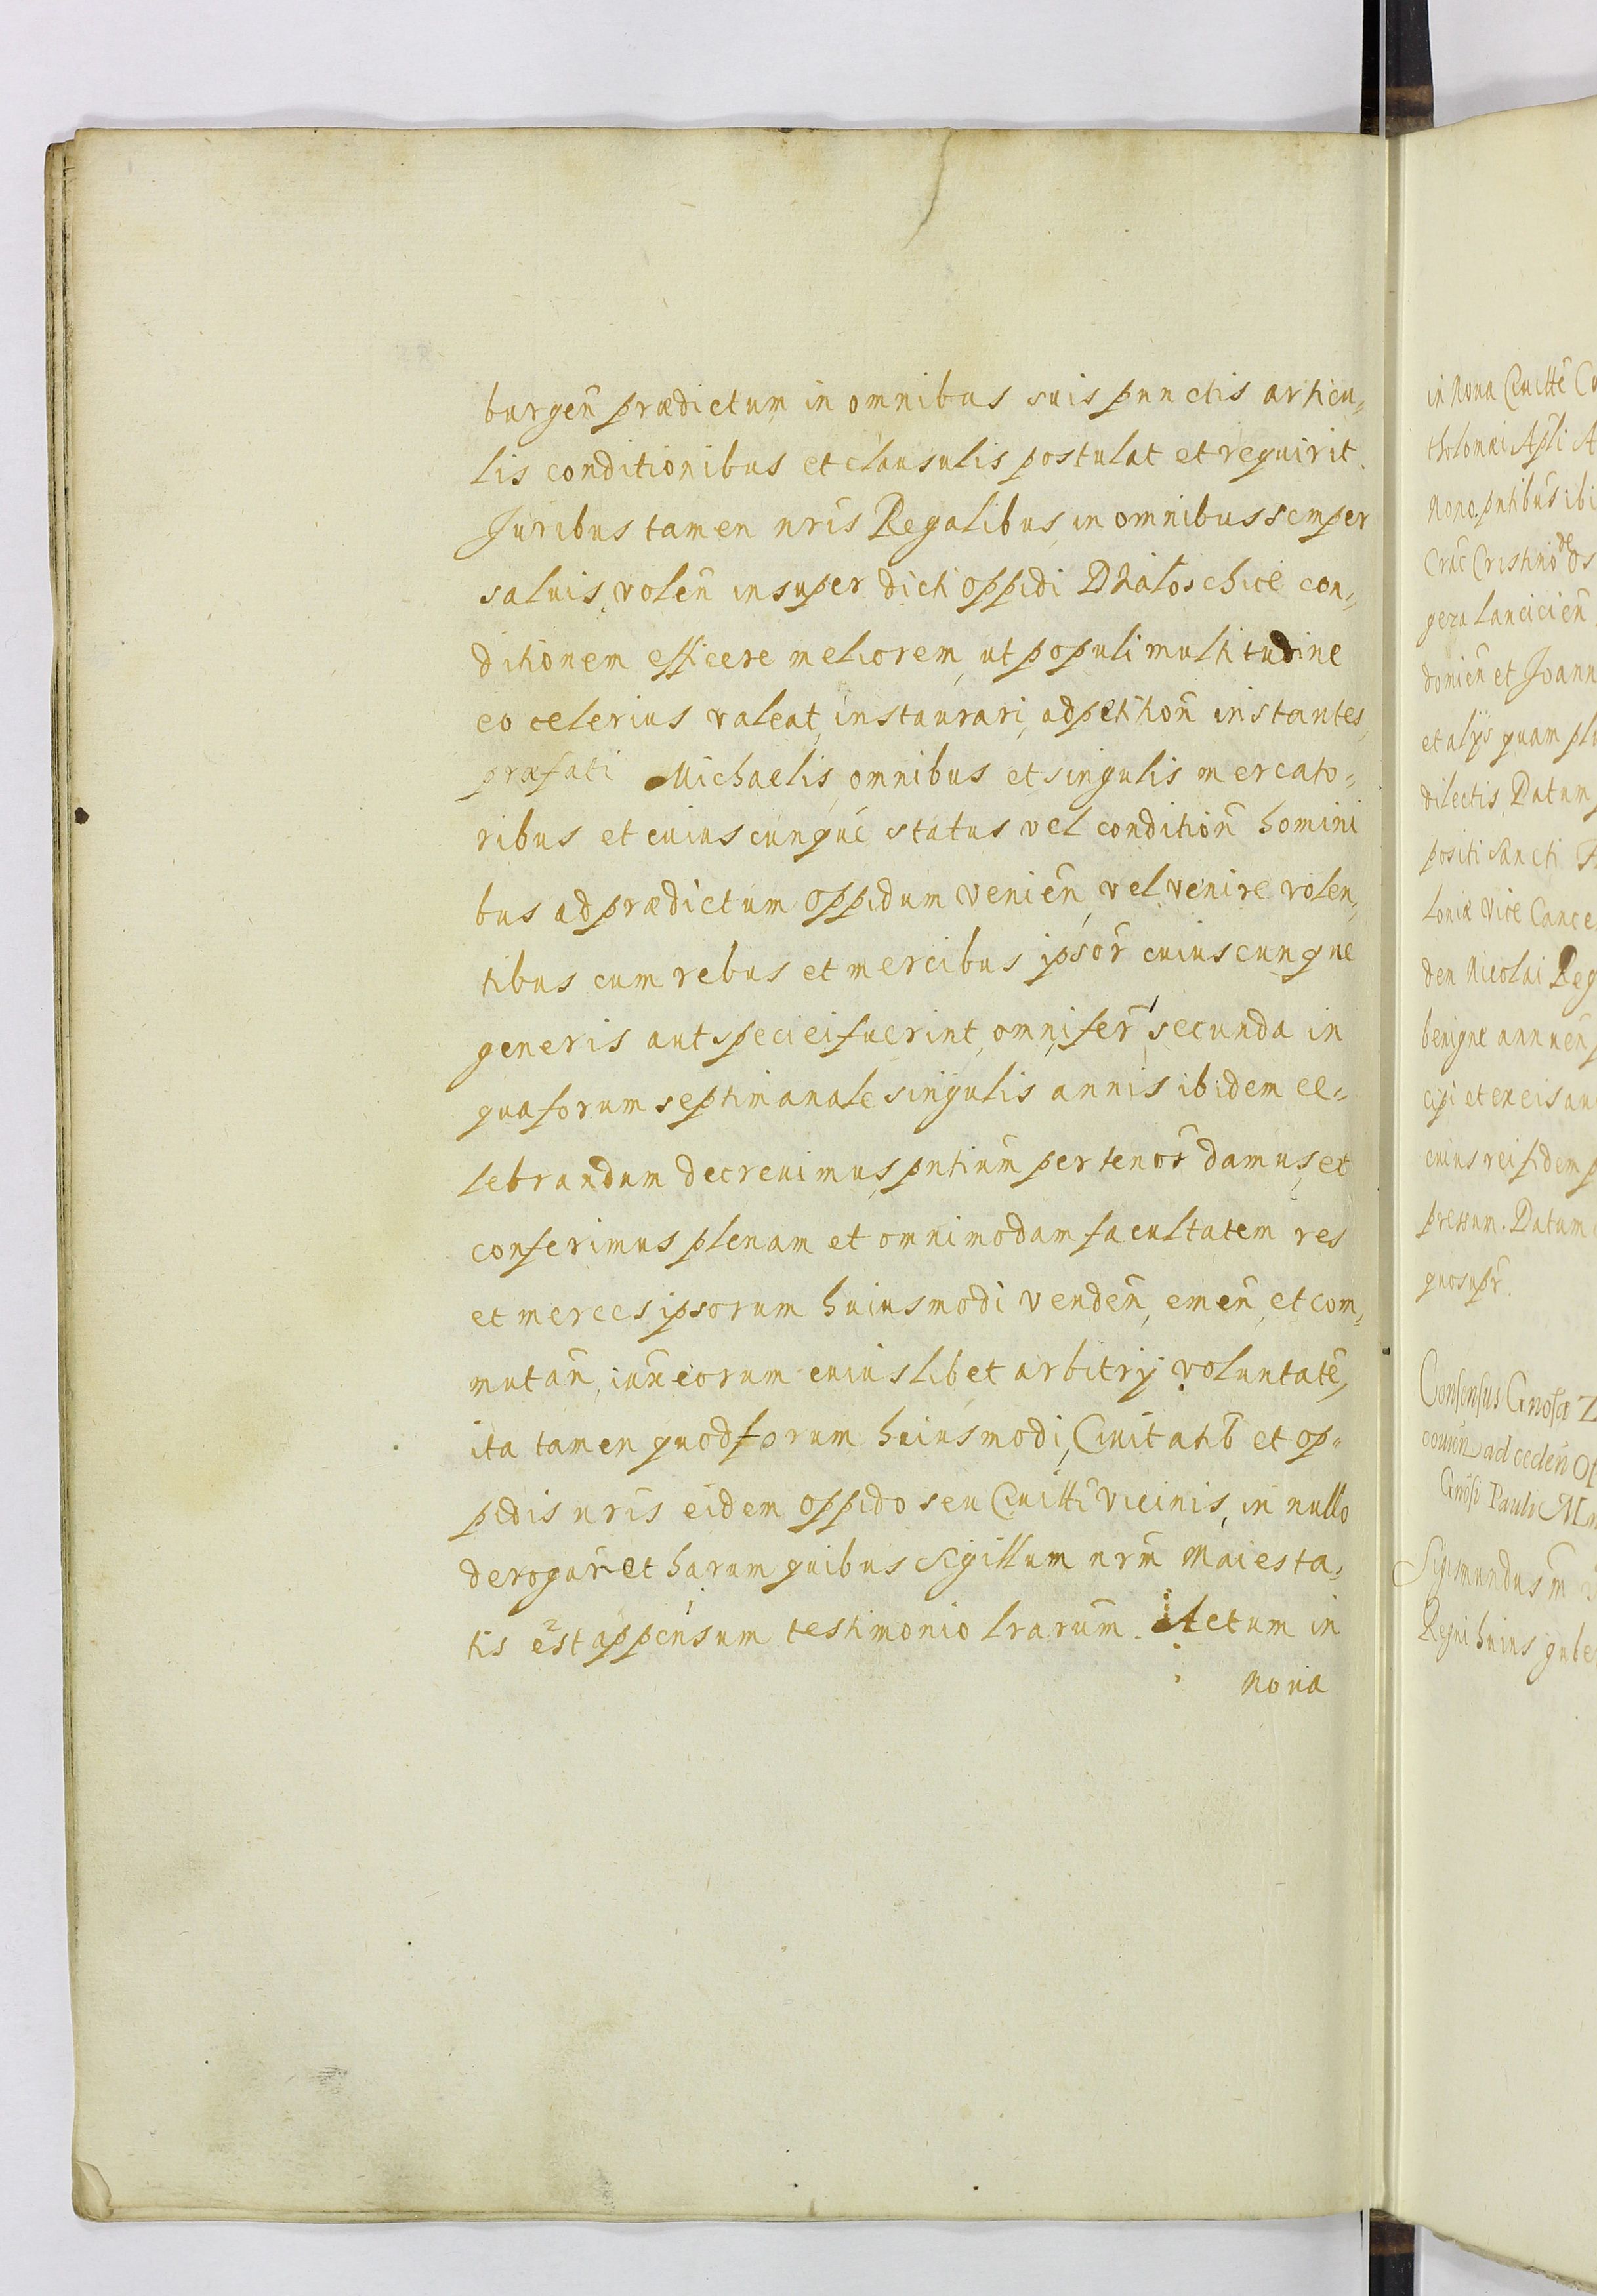 burgen̄ prædictum in omnibus suis punctis articu„
lis conditionibus et clausulis postulat et requirit.
Juribus tamen nris Regalibus, in omnibus semper
saluis, volen̄ insuper dicti oppidi Dzialoschice con„
ditionem efficere meliorem, ut populi multitudine
eo celerius valeat, instaurari, ad petition̄ instantes,
præfati Michaelis, omnibus et singulis mercato„
ribus et cuiuscunque status vel condition̄ homini
bus ad prædictum oppidum venien̄, vel venire volen„
tibus cum rebus et mercibus ipsor̄ cuiuscunque
generis aut speciei fuerint, omni fer̄ secunda in
qua forum septimanale singulis annis ibidem ce„
lebrandum decreuimus, pntium̄ per tenor̄ damus, et
conferimus plenam et omnimodam facultatem res
et merces ipsorum huiusmodi venden̄, emen̄, et com„
mutan̄, iux̄ eorum cuiuslibet arbitrÿ voluntatē,
ita tamen quod forum huiusmodi, Ciuitatib̄ et op„
pidis nris eidem oppido seu Ciuitti vicinis, in nullo
derogar̄ et harum quibus Sigillum nrm̄ Maiesta„
tis est appensum testimonio lrarum̄. Actum in
noua
in Noua Ciuitte
tholomæi Apli
Nono. pntibus ibi
Crac̄ Cristino de
geza Lancicien̄
domien̄ et Joann
et alÿs quam
dilectis, Datum
positi Sancti
loniæ Vice Cance
den Nicolai Reg
benigne annuen̄
cipi et ex eis
cuius rei fidem
pressum. Datum
quo supr̄.
Consensus Gnosæ
couien̄ ad ceden̄
Gnosi Pauli
Sigismundus
Regni huius gube